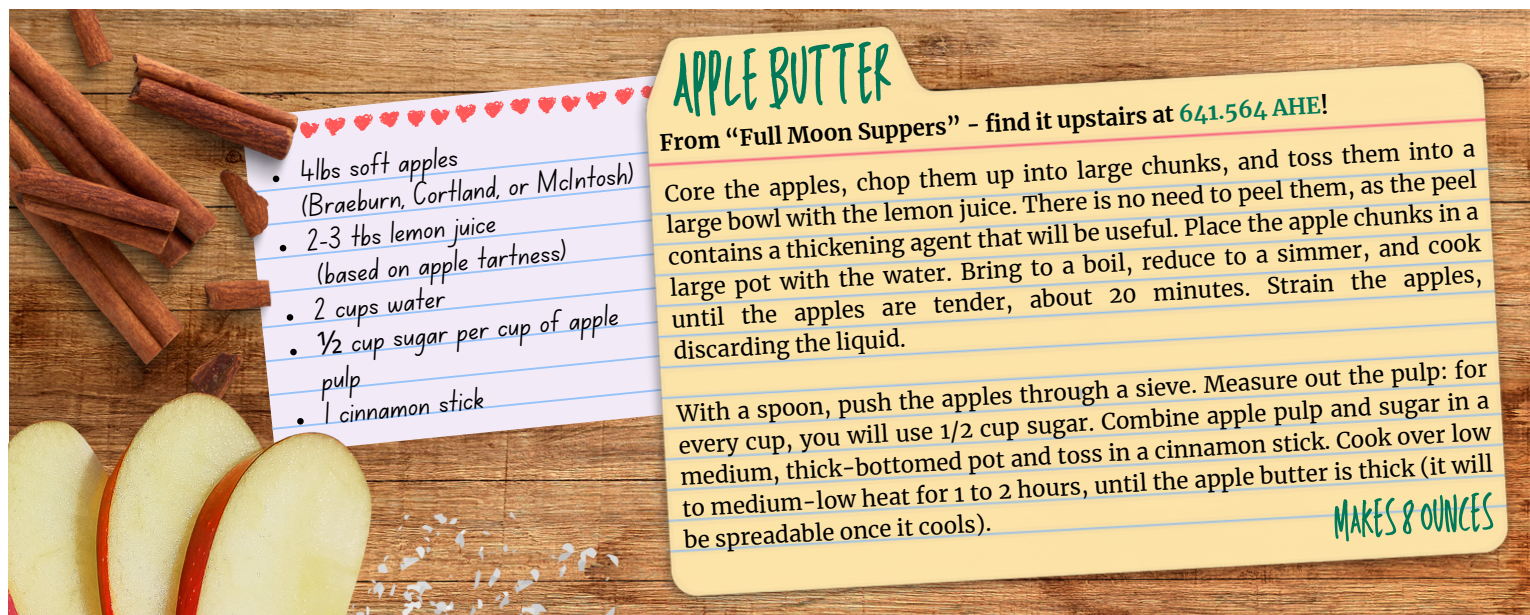 4lbs soft apples
(Braeburn, Cortland, or McIntosh)
2-3 tbs lemon juice
(based on apple tartness)
2 cups water
½ cup sugar per cup of apple
pulp
1 cinnamon stick
APPLE BUTTER
From “Full Moon Suppers” - find it upstairs at 641.564 AHE!
Core the apples, chop them up into large chunks, and toss them into a
large bowl with the lemon juice. There is no need to peel them, as the peel
contains a thickening agent that will be useful. Place the apple chunks in a
large pot with the water. Bring to a boil, reduce to a simmer, and cook
until the apples are tender, about 20 minutes. Strain the apples,
discarding the liquid.
With a spoon, push the apples through a sieve. Measure out the pulp: for
every cup, you will use 1/2 cup sugar. Combine apple pulp and sugar in a
medium, thick-bottomed pot and toss in a cinnamon stick. Cook over low
to medium-low heat for 1 to 2 hours, until the apple butter is thick (it will
be spreadable once it cools).
MAKES 8 OUNCES